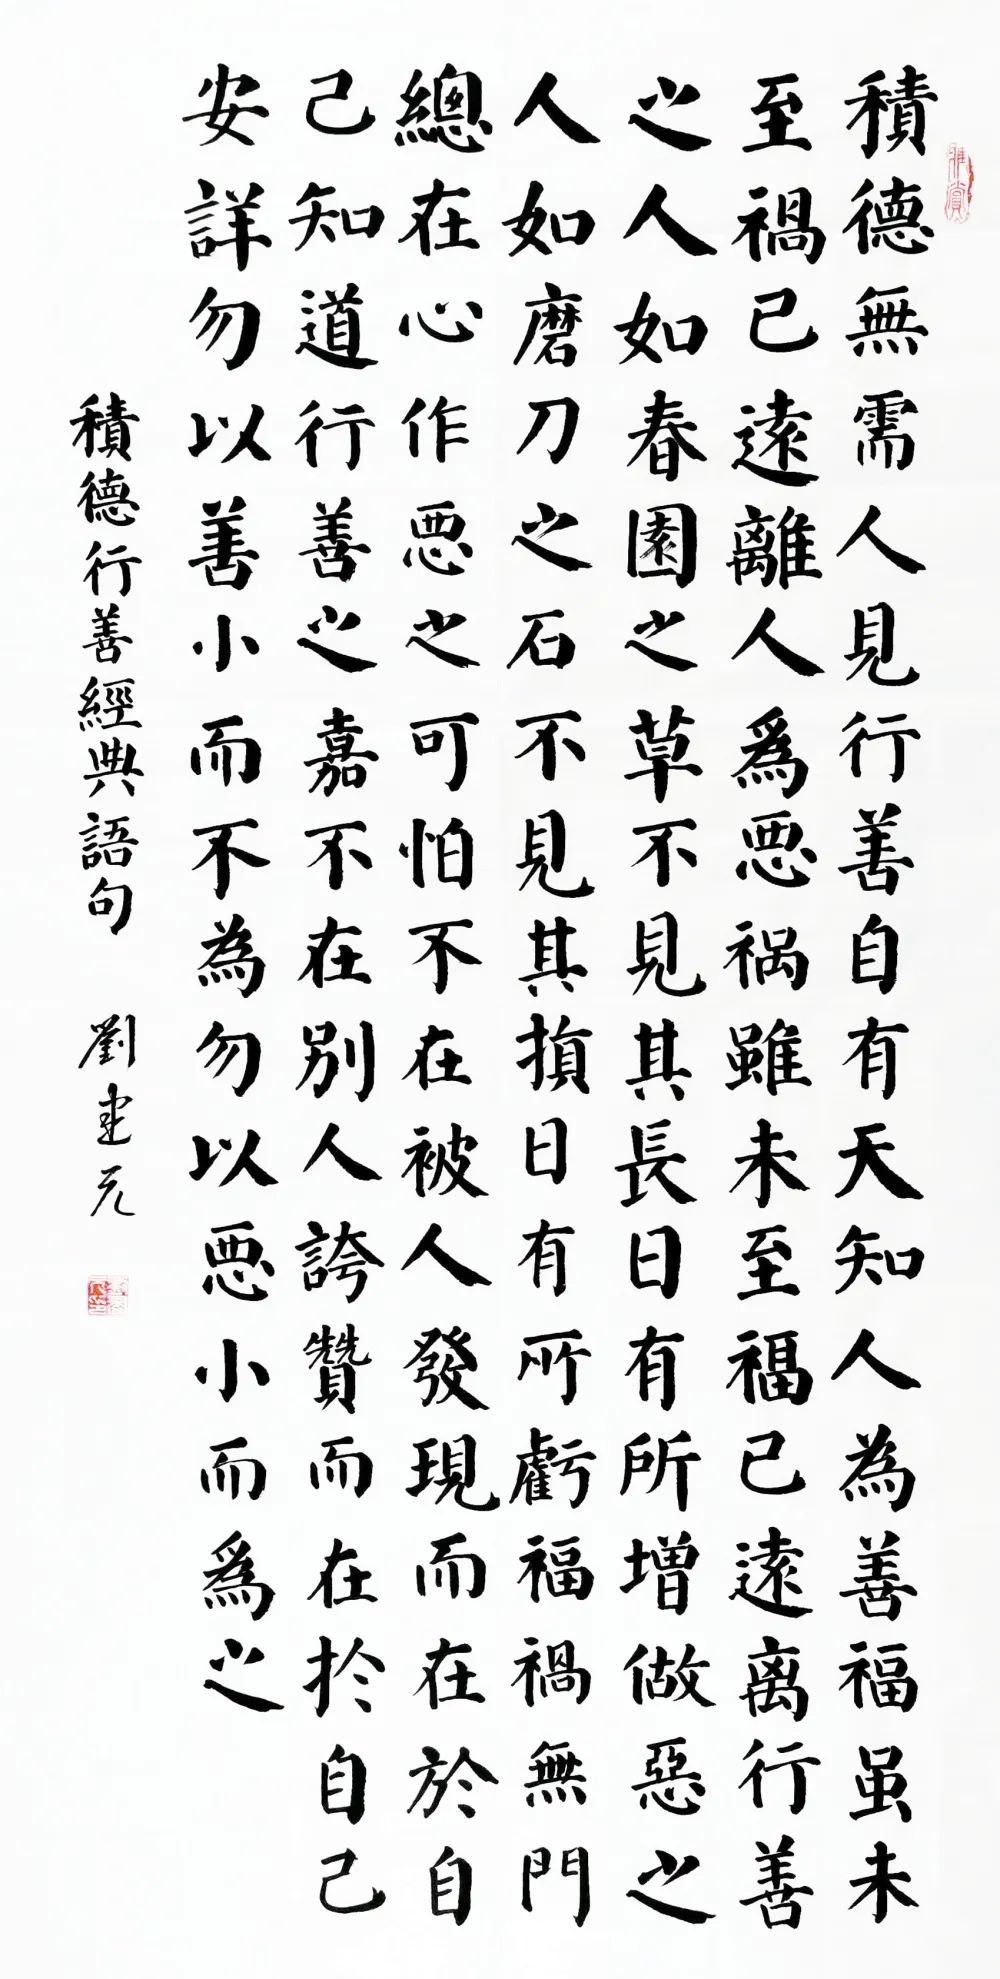 積德無需人見行善自有天知人為善福虽未
至禍已遠離人爲惡祸雖未至福已遠离行善
之人如春園之草不見其長日有所增做惡之
人如磨刀之石不見其損日有所虧福禍無門
總在心作惡之可怕不在被人發現而在於自
己知道行善之嘉不在别人誇贊而在於自己
安詳勿以善小而不為勿以惡小而爲之
積德行善經典語句 劉建元
雅賞